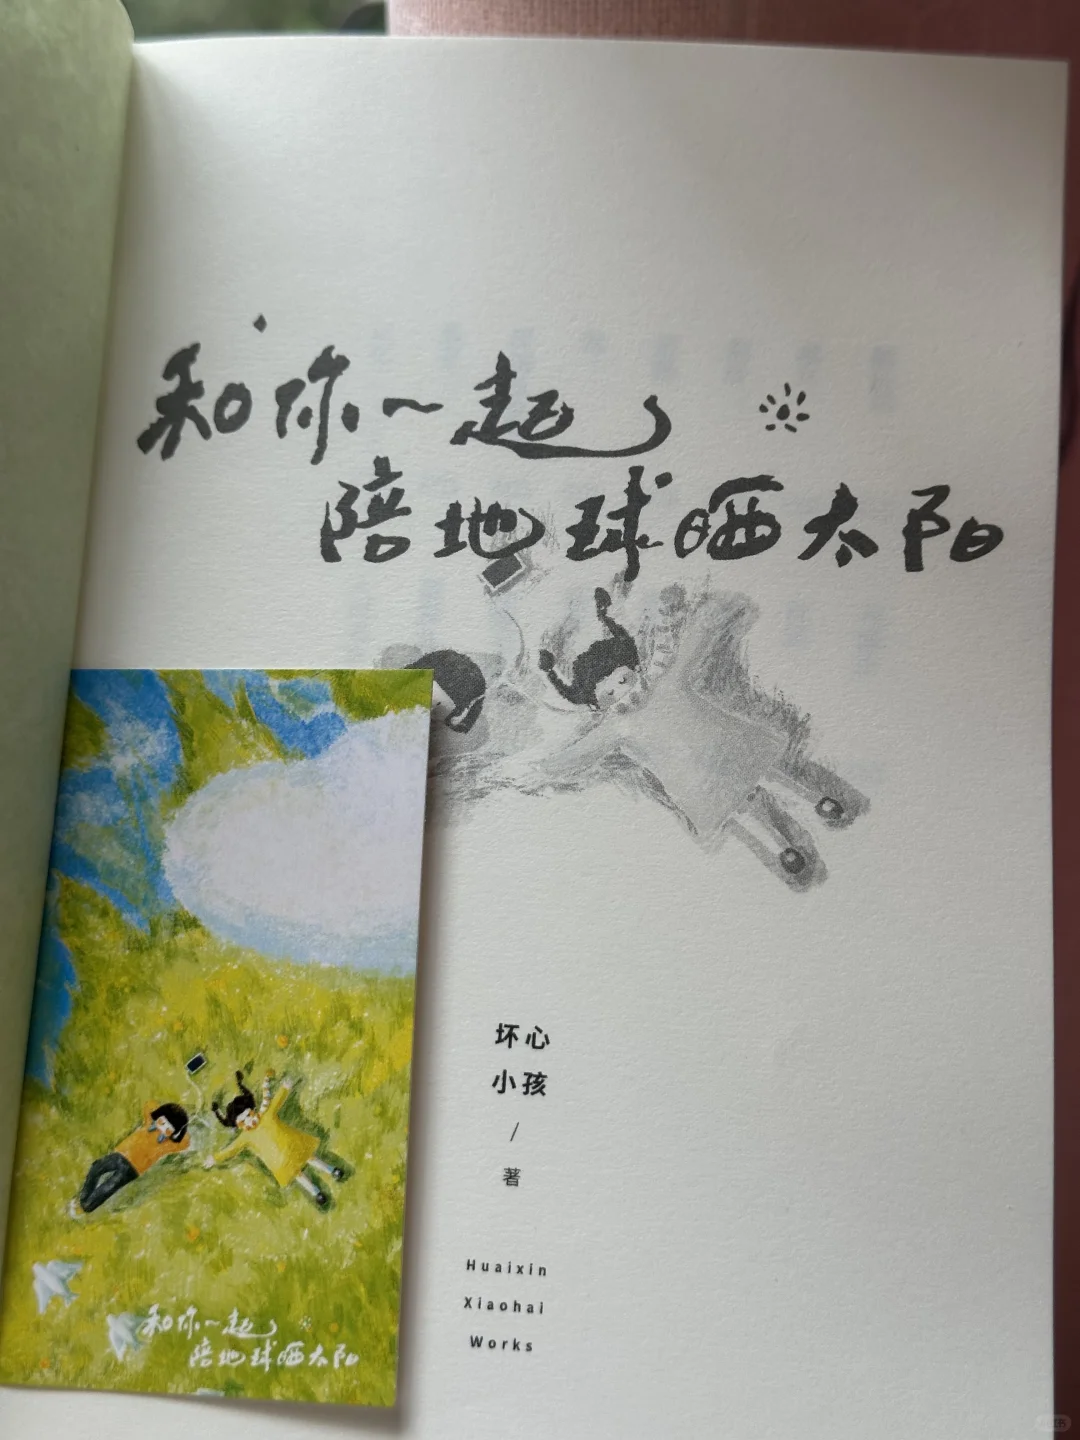 和你一起
陪地球晒太阳
坏心
小孩
/
著
Huaixin
Xiaohai
Works
和你一起
陪地球晒太阳